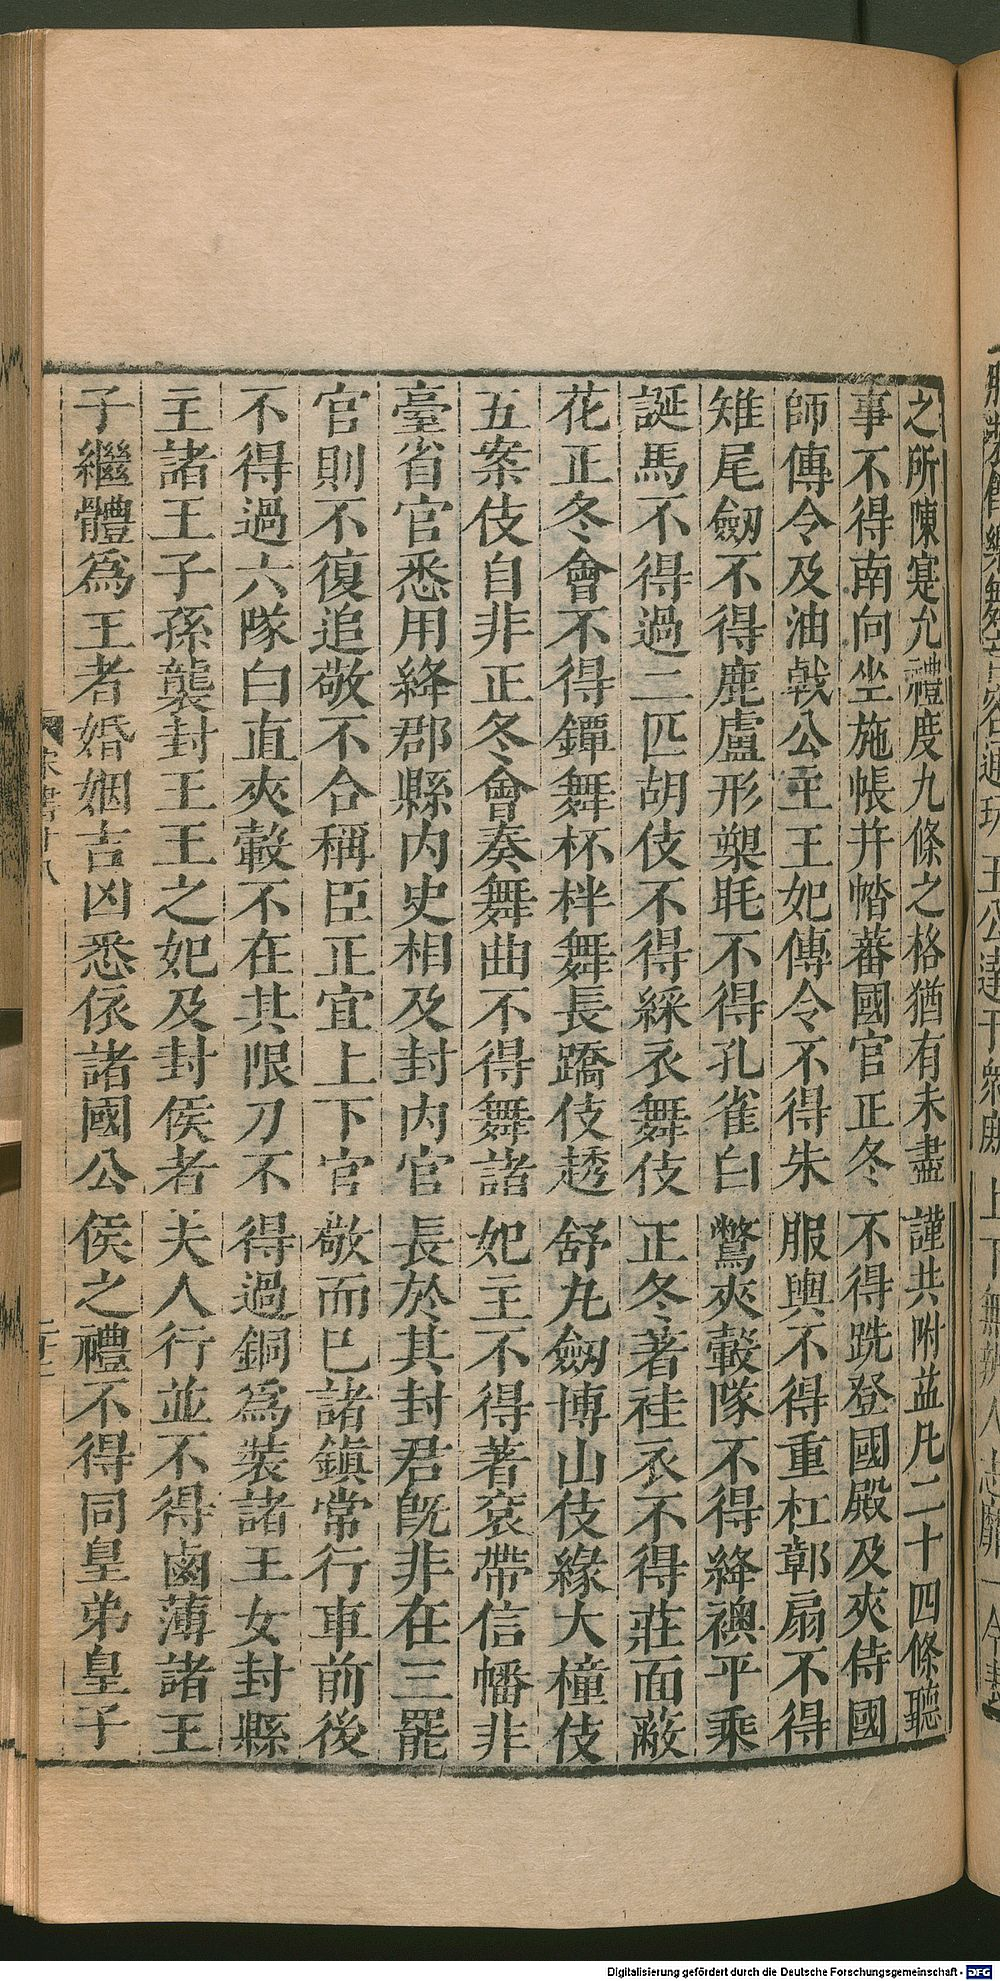 之所陳寔允禮度九條之格猶有未盡謹共附益凡二十四條聽
事不得南向坐施帳并㡌蕃國官正冬不得跣登國殿及夾侍國
師傳令及油戟公主王妃傳令不得朱服輿不得重杠鄣扇不得
雉尾劒不得鹿盧形槊毦不得孔雀白鷩夾轂隊不得絳襖平乘
誕馬不得過二匹胡伎不得綵衣舞伎正冬著袿衣不得莊面蔽
花正冬會不得鐔舞杯柈舞長蹻伎透舒丸劒博山伎緣大橦伎
五案伎自非正冬會奏舞曲不得舞諸妃主不得著衮帶信幡非
臺省官悉用絳郡縣內史相及封內官長於其封君旣非在三罷
官則不復追敬不合稱臣正宜上下官敬而已諸鎮常行車前後
不得過六隊白直夾轂不在其限刀不得過銅爲裝諸王女封縣
主諸王子孫襲封王王之妃及封侯者夫人行並不得鹵薄諸王
子繼體爲王者婚姻吉凶悉依諸國公侯之禮不得同皇弟皇子
Digitalisierung gefördert durch die Deutsche Forschungsgemeinschaft - DFG